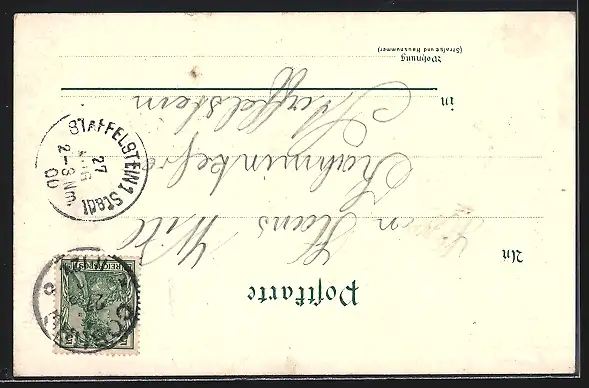 Postkarte
An
Herrn Hans Will
in Staffelstein
Wohnung
(Straße und Hausnummer)
STAFFELSTEIN 1 Stadt
27
AUG
2-3 Nm.
00
REICHSPOST